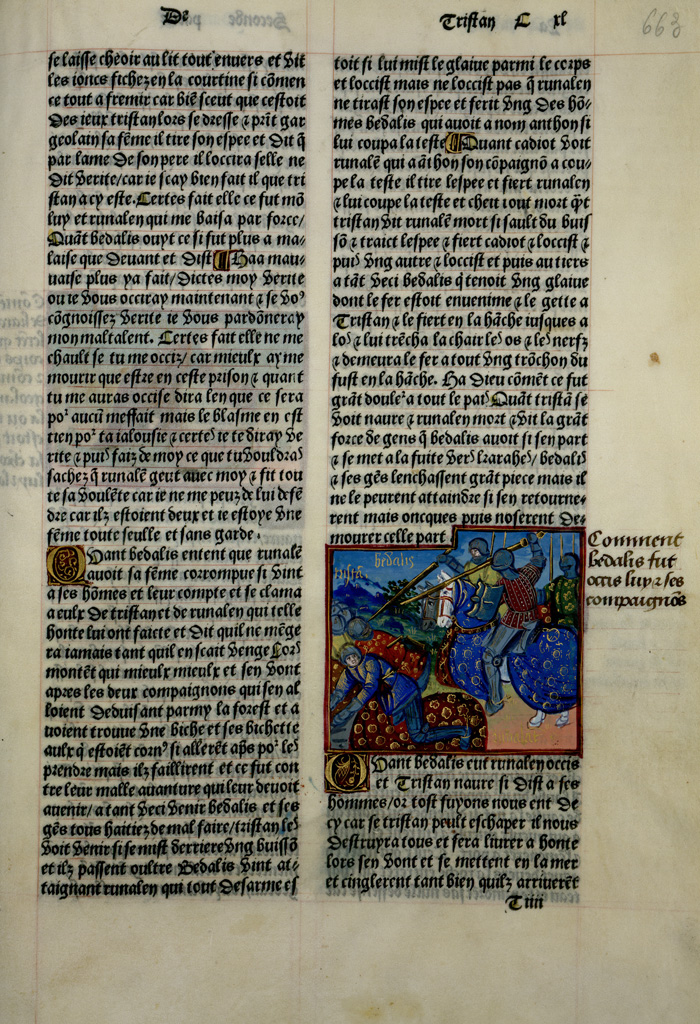 De
Tristan C xl
668
se laisse cheoir au lit tout enuers et vit
les ioncs fichez en la courtine si cōmen
ce tout a fremir car biē sceut que cestoit
des ieux tristan lors se dresse ⁊ prāt gar
geolain sa fēme il tire son espee et dit q̄
par lame de son pere il loccira selle ne
dit verite/ car ie scay bien fait il que tri
stan a cy este. Certes fait elle ce fut mō
luy et runalen qui me baisa par force/
Quāt bedalis ouyt ce si fut plus a ma⸗
laise que deuant et dist Haa mau⸗
uaise plus ya fait/ Dictes moy verite
ou ie vous occiray maintenant ⁊ se voꝰ
cōgnoissez verite ie vous pardōneray
mon maltalent. Certes fait elle ne me
chault se tu me occiz/ car mieulx ay me
mourir que estre en ceste prison ⁊ quant
tu me auras occise dira len que ce sera
poᷣ aucū meffait mais le blasme en est
tien poᷣ ta ialousie ⁊ certeſ ie te diray ve
rite ⁊ puiſ faiz de moy ce que tu vouldraſ
sachez q̄ runalē geut auec moy ⁊ fit tou
te sa voulēte car ie ne me peuz de lui defē
dre car ilz estoient deux et ie estoye vne
fēme toute seulle et sans garde.
Quant bedalis entent que runalē
auoit sa fēme corrompue si vint
a ses hōmes et leur compte et se clama
a eulx de tristan et de runalen qui telle
honte lui ont faicte et dit quil ne mēge
ra iamais tant quil en scait venge Lorſ
montēt qui mieulx mieulx et sen vont
apres les deux compaignons qui sen al
loient deduisant parmy la forest et a
uoient trouue vne biche et ses bichette
aulx q̄ estoiēt cornꝰ si allerēt ap̄s poᷣ leſ
prendre mais ilz faillirent et ce fut con
tre leur malle auanture qui leur deuoit
auenir/ a tant veci venir bedalis et ses
gēs tous haitiez de mal faire/ tristan leſ
voit venir si se mist derriere vng buissō
et ilz passent oultre Bedalis vint at⸗
taignant runalen qui tout desarme es
toit si lui mist le glaiue parmi le corps
et loccist mais ne loccist pas q̄ runalen
ne tirast son espee et ferit vng des hō⸗
mes bedalis qui auoit a nom anthon si
lui coupa la teste Quant cadiot voit
runalē qui a āthon son cōpaignō a cou⸗
pe la teste il tire lespee et fiert runalen
⁊ lui coupe la teste et cheit tout mort q̄t
tristan vit runalē mort si sault du buis
sō ⁊ traict lespee ⁊ fiert cadiot ⁊ loccist ⁊
puiſ vng autre ⁊ loccist et puis au tiers
a tāt veci bedalis q̄ tenoit vng glaiue
dont le fer estoit enuenime ⁊ le gette a
Tristan ⁊ le fiert en la hāche iusques a
loſ ⁊ lui trēcha la chair leſ os ⁊ leſ nerfz
⁊ demeura le fer a tout vng trōchon du
fust en la hāche. Ha dieu cōmēt ce fut
grāt douleᷣ a tout le paiſ Quāt tristā se
voit naure ⁊ runalen mort ⁊ vit la grāt
force de gens q̄ bedalis auoit si sen part
⁊ se met a la fuite verſ karaheſ/ bedaliſ
⁊ ses gēs lenchassent grāt piece mais il
ne le peurent attaindre si sen retourne⸗
rent mais oncques puis noserent de⸗
mourer celle part
Comment
bedalis fut
occis luy ⁊ ses
compaignōs
bedalis
tristā.
Quant bedalis eut runalen occis
et Tristan naure si dist a ses
hommes/ or tost fuyons nous ent de
cy car se tristan peult eschaper il nous
destruyra tous et sera liurer a honte
lors sen vont et se mettent en la mer
et cinglerent tant bien quilz arriuerēt
T iiii